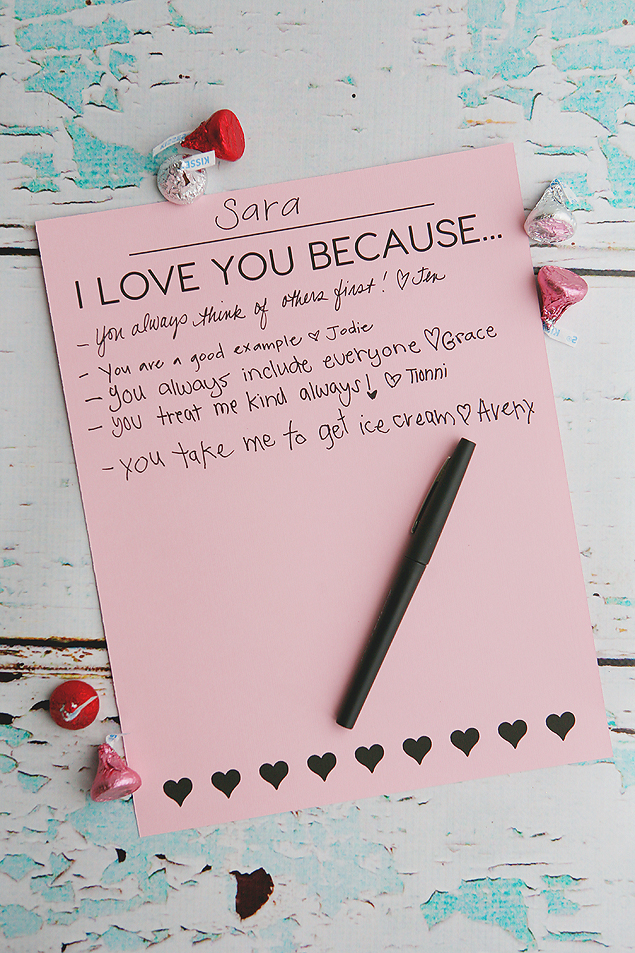 KISSES
KISSES
Sara
I LOVE YOU BECAUSE...
- You always think of others first! ♡ Jen
- You are a good example ♡ Jodie
- you always include everyone ♡ Grace
- you treat me kind always! ♡ Tionni
- you take me to get ice cream ♡ Avery